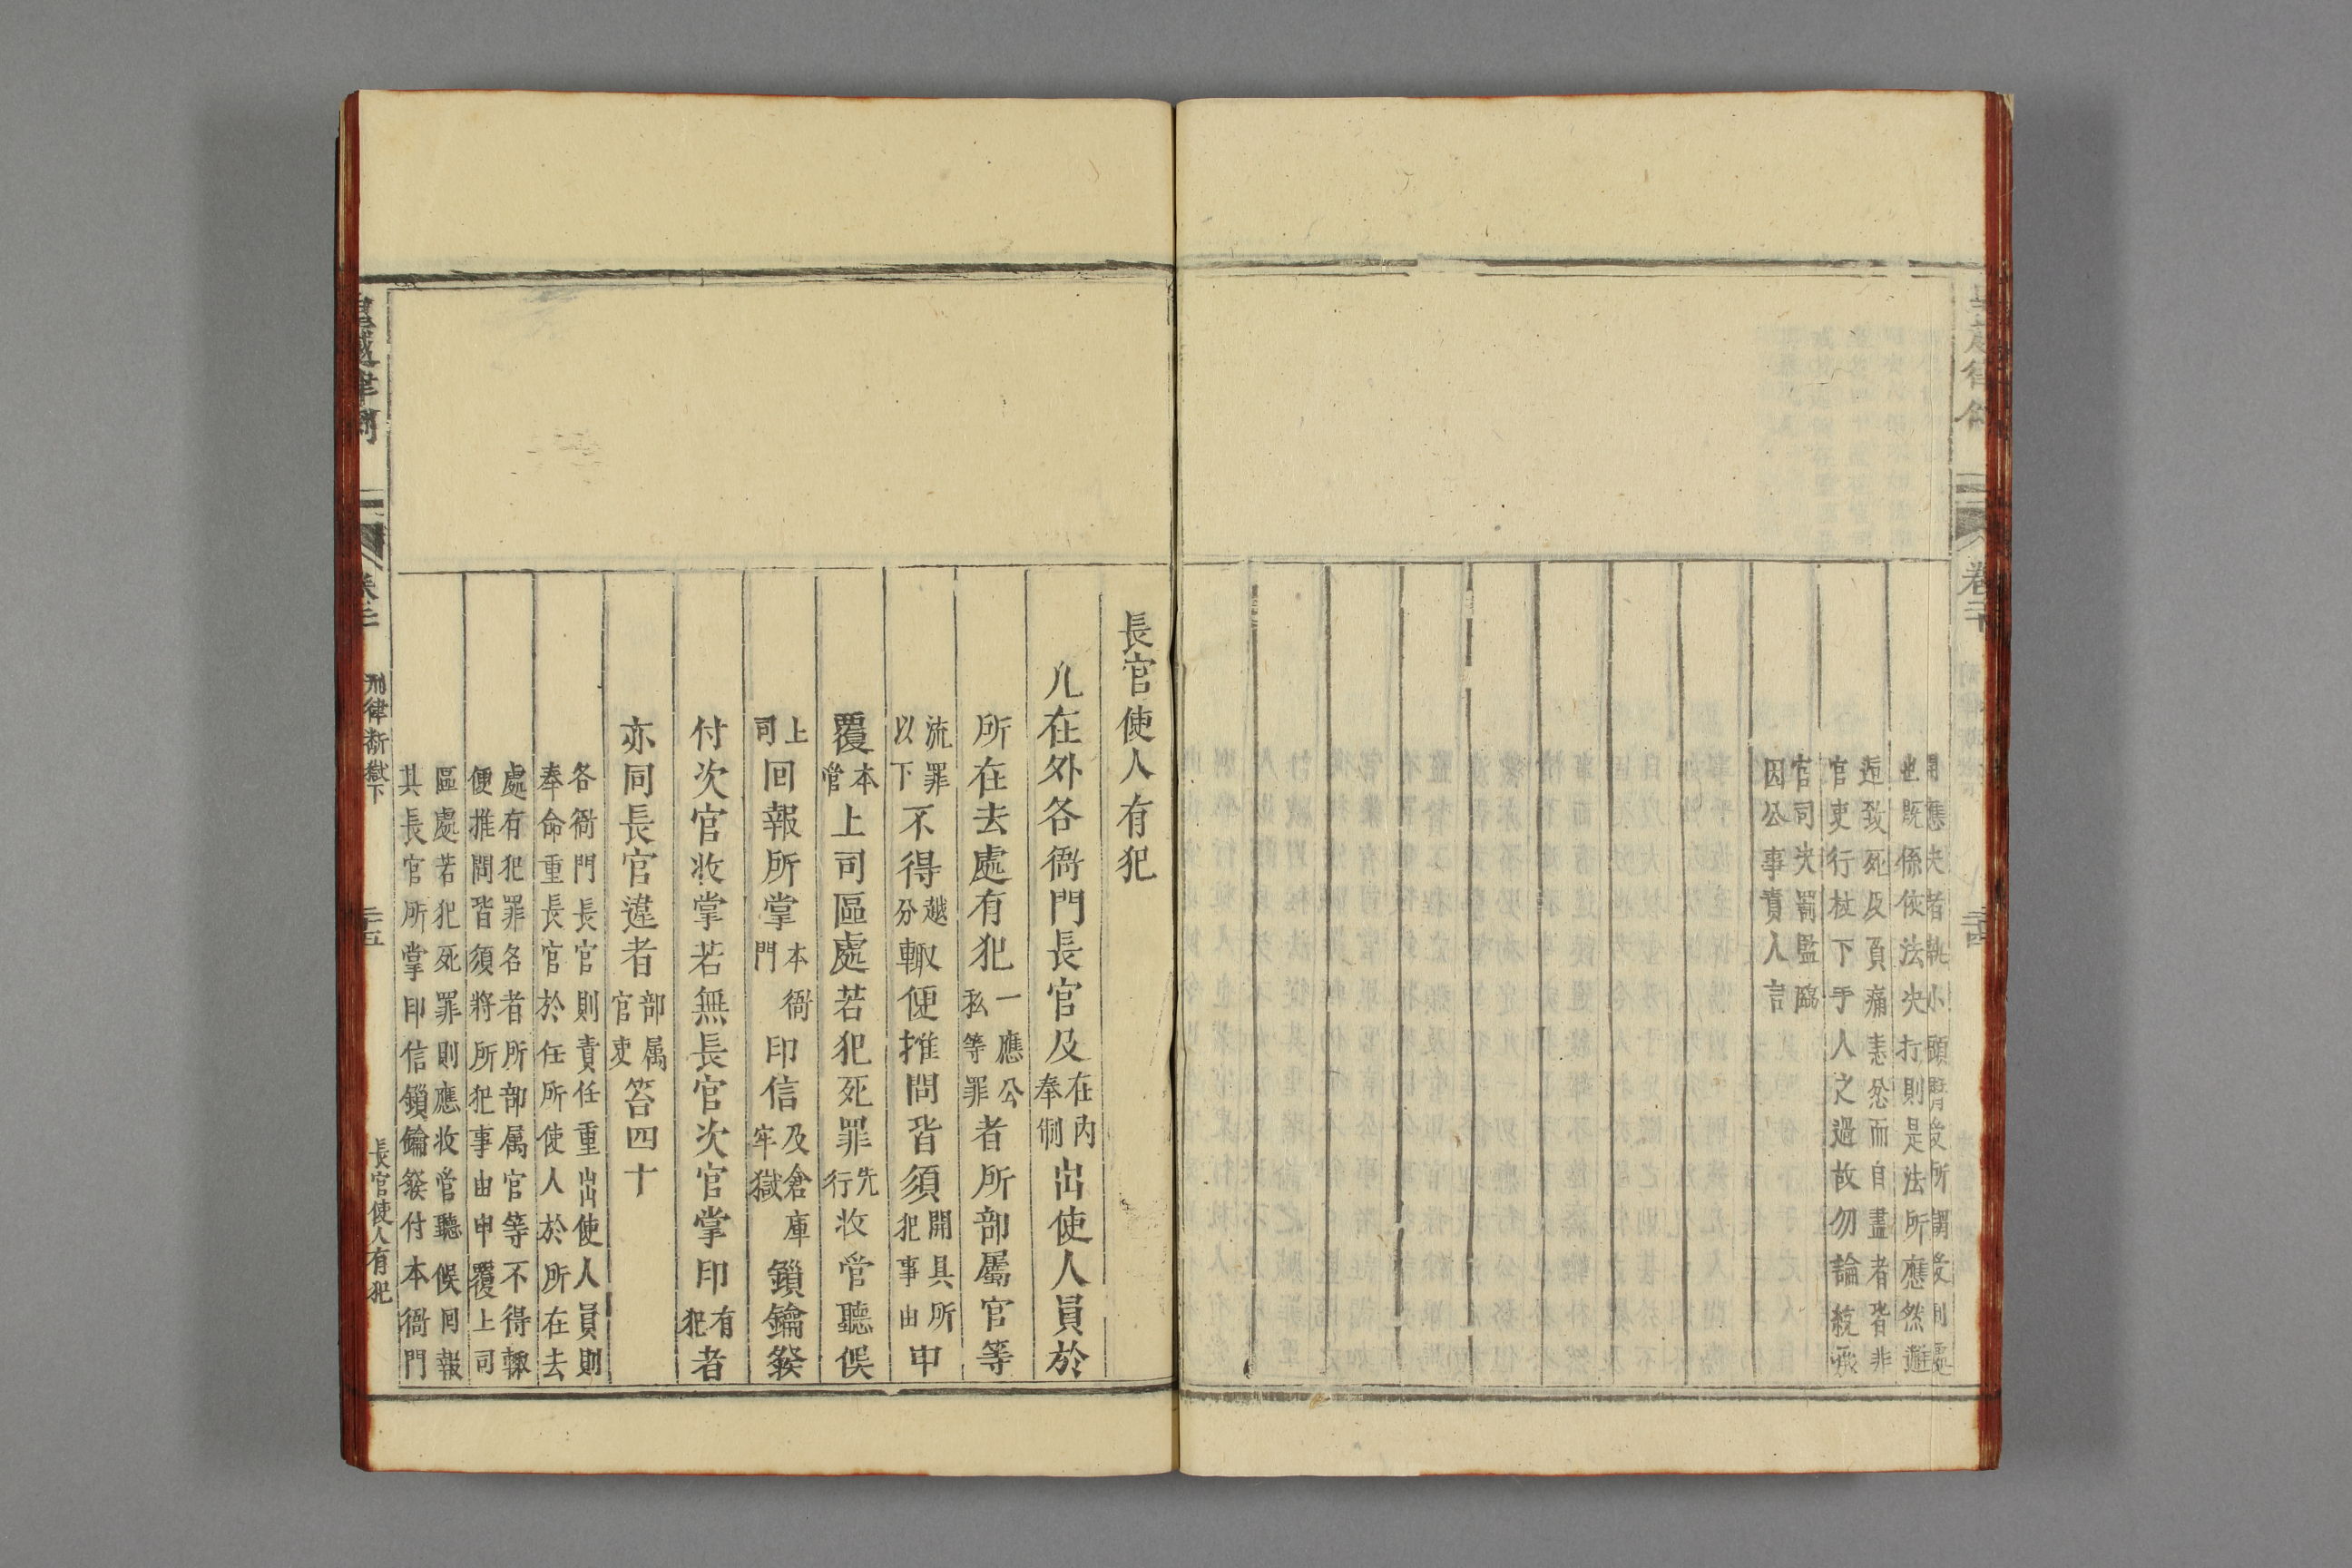 用應决者執小頭臀受所謂受刑處
也既係依法决打則是法所應然邂
逅致死及負痛恚忿而自盡者皆非
官吏行杖下手人之過故勿論統承
官司决罰監臨
因公事責人言
卷二十
三四
長官使人有犯
凡在外各衙門長官及在內奉制出使人員於
所在去處有犯一應公私等罪者所部屬官等
流罪以下不得越分輙便推問皆須開具所犯事由申
覆本管上司區處若犯死罪先行收管聽候
上司回報所掌本衙門印信及倉庫牢獄鎖鑰發
付次官收掌若無長官次官掌印有犯者
亦同長官違者部属官吏笞四十
各衙門長官則責任重出使人員則
奉命重長官於任所使人於所在去
處有犯罪名者所部属官等不得輙
便推問皆須將所犯事由申覆上司
區處若犯死罪則應收管聽候回報
其長官所掌印信鎖鑰發付本衙門
皇越律例
刑律斷獄下
三五
長官使人有犯